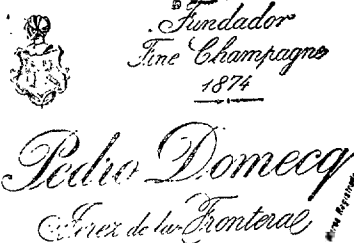 Fundador
Fine Champagne
1874
Pedro Domecq
Jerez de la Frontera
Marca Registrada